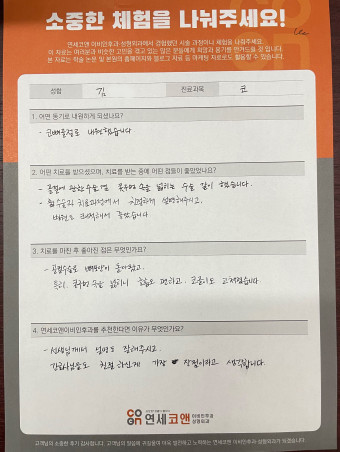 소중한 체험을 나눠주세요!
연세코앤 이비인후과 성형외과에서 경험했던 시술 과정이나 체험을 나눠주세요.
이 자료는 여러분과 비슷한 고민을 겪고 있는 많은 분들에게 희망과 용기를 안겨드릴 것 입니다.
본 자료는 학술 논문 및 본원의 홈페이지와 블로그 자료 등 마케팅 자료로도 활용될 수 있습니다.
성함 김 진료과목 코
1. 어떤 동기로 내원하게 되셨나요?
- 코막힘으로 내원했습니다
2. 어떤 치료를 받으셨으며, 치료를 받는 중에 어떤 점들이 좋았었나요?
- 콧구멍 속을 넓히는 수술 같이 했습니다.
- 치료과정에서 친절하게 설명해주시고,
좋았습니다
3. 치료를 마친 후 좋아진 점은 무엇인가요?
좋아졌고.
특히, 콧구멍 속을 넓히니 호흡도 편하고. 코골이도 고쳐졌습니다
4. 연세코앤이비인후과를 추천한다면 이유가 무엇인가요?
- 선생님께서 설명도 잘해주시고.
간호사님들도 친절하신게 가장 장점이라고 생각합니다.
연세코앤 이비인후과 성형외과
고객님의 소중한 후기 감사합니다. 고객님의 말씀에 귀 기울이며 더욱 발전하고 노력하는 연세코앤 이비인후과 성형외과가 되겠습니다.